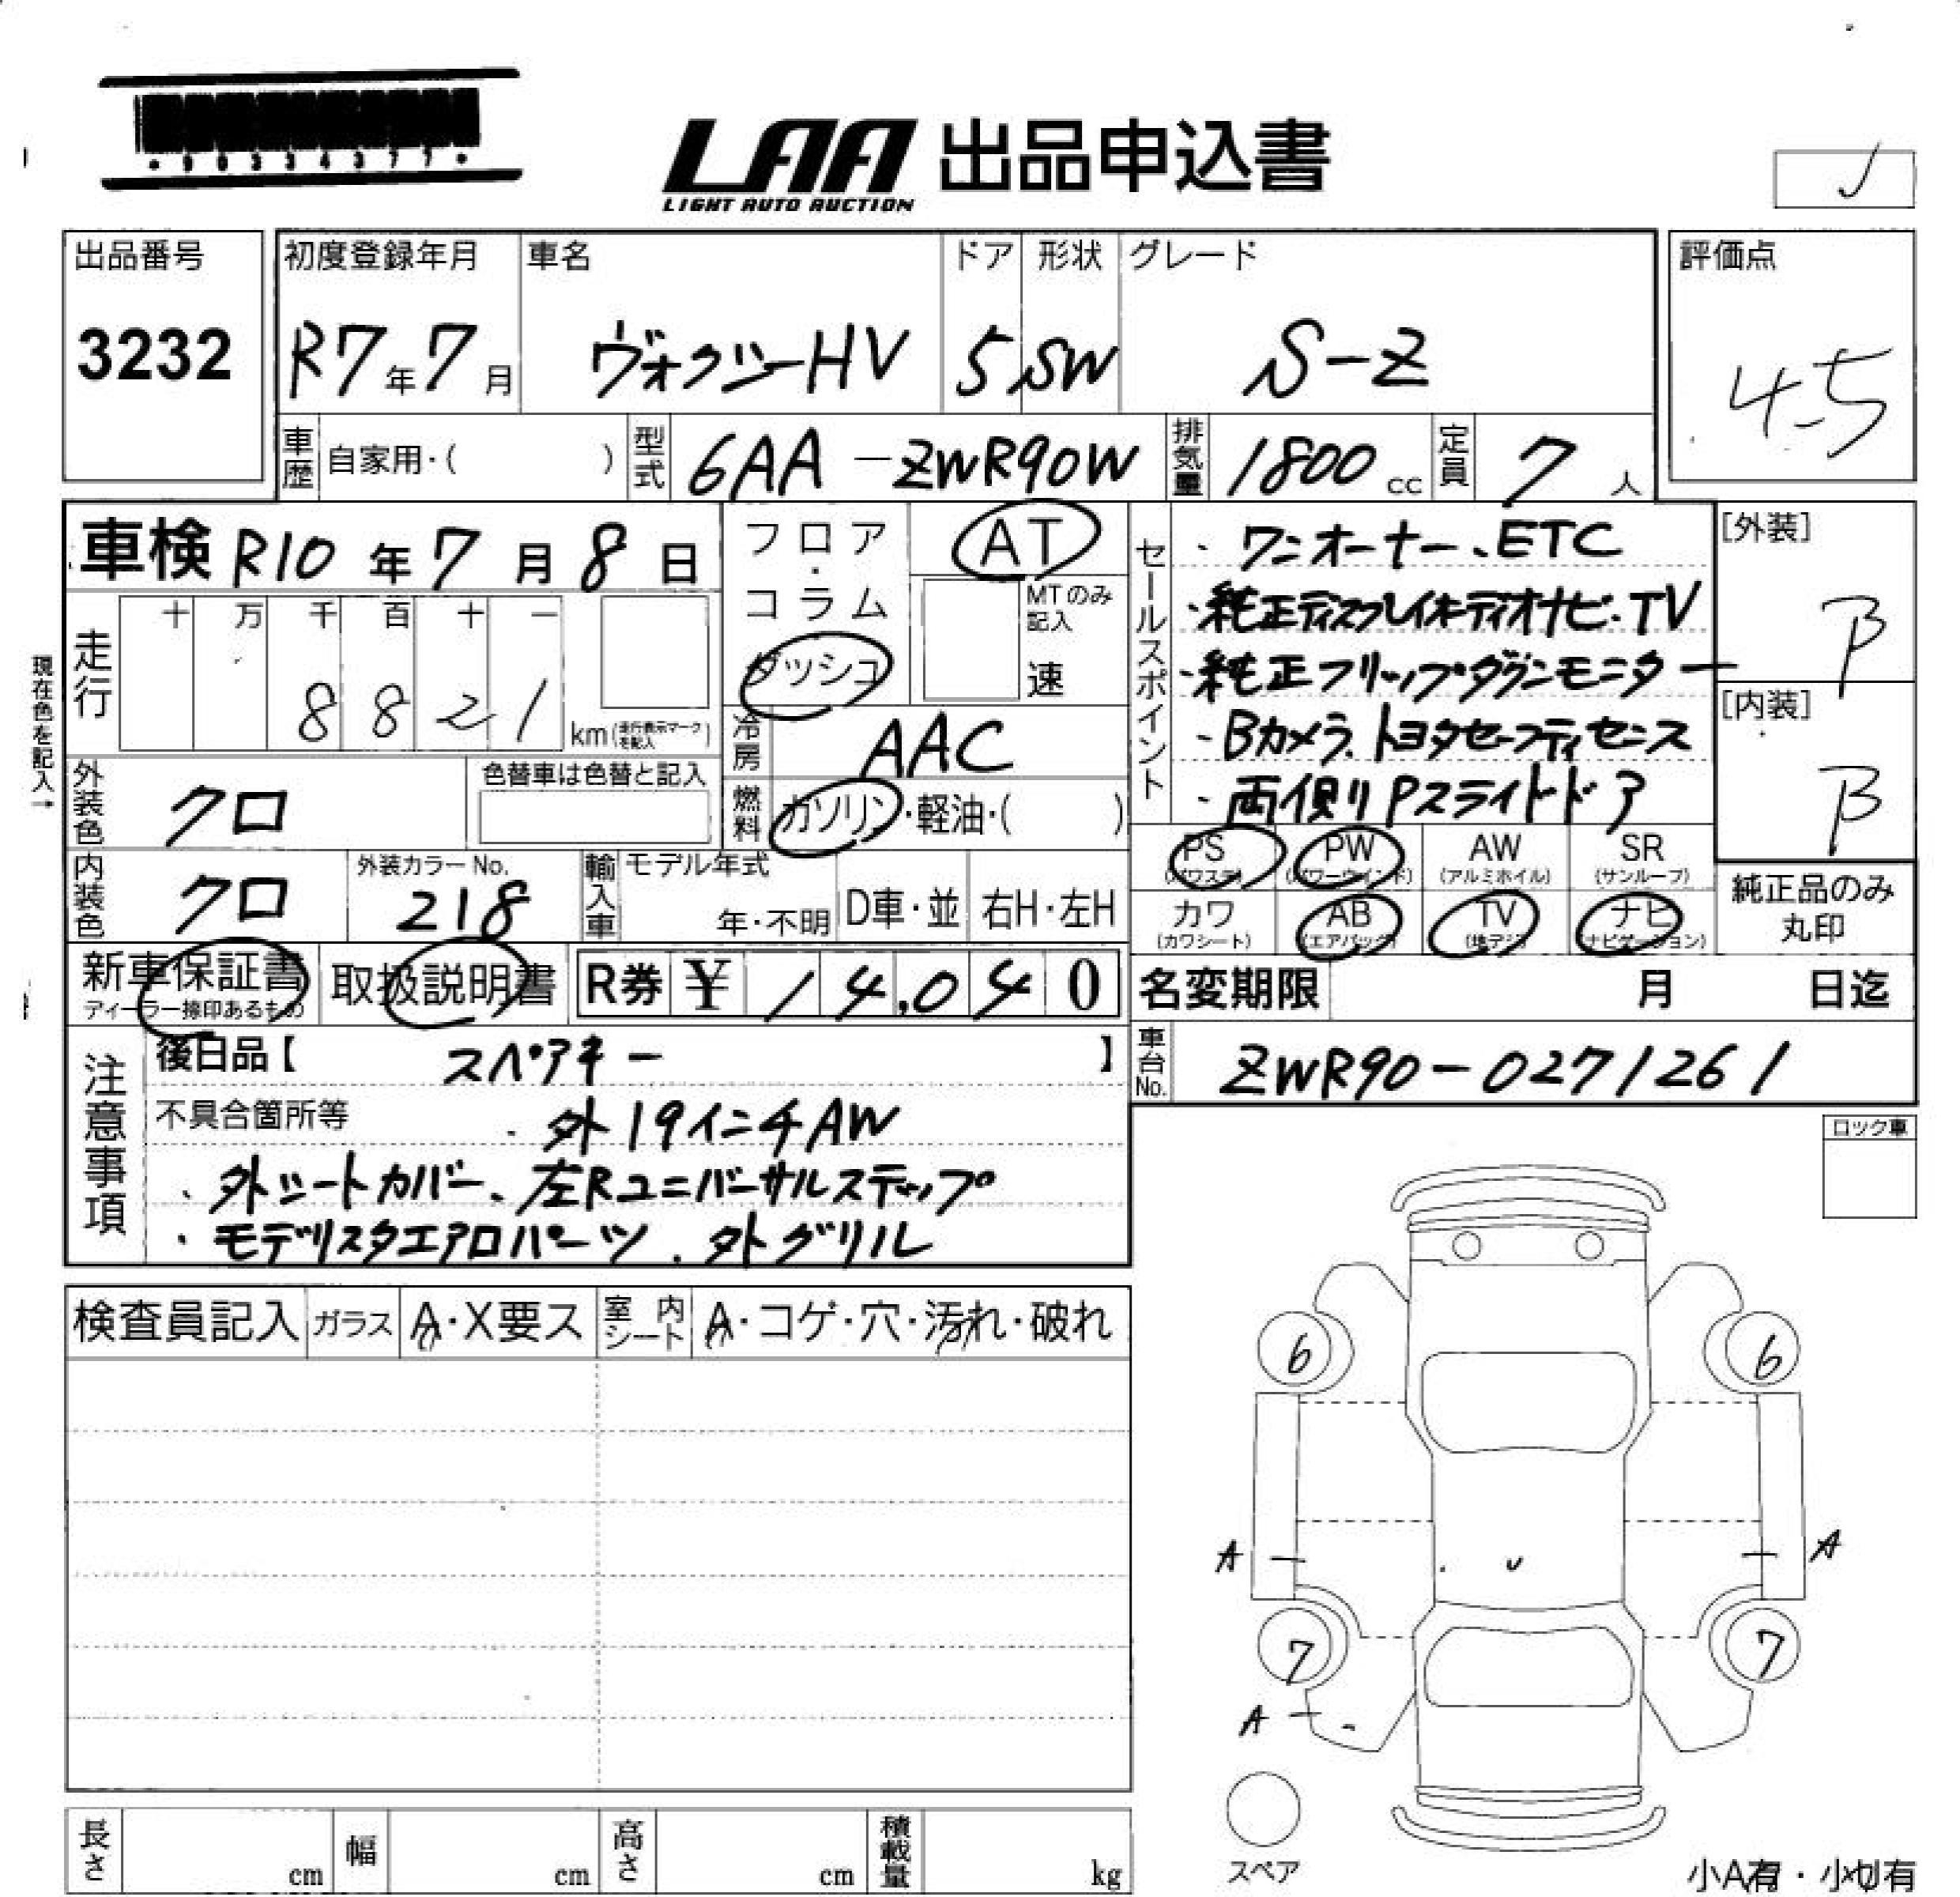 ・90334377・
LAA 出品申込書
LIGHT AUTO AUCTION
出品番号 初度登録年月 車名 ドア 形状 グレード 評価点
3232 R7年7月 ヴォクシーHV 5 SW S-Z 4.5
車歴 自家用・( ) 型式 6AA-ZWR90W 排気量 1800cc 定員 7人
車検 R10年7月8日
フロア・コラム
ダッシュ
AT
MTのみ記入
速
セールスポイント
・ワンオーナー、ETC
・純正ディスプレイオーディオナビ・TV
・純正フリップダウンモニター
・Bカメラ、トヨタセーフティセンス
・両側Pスライドドア
[外装] B
[内装] B
走行 十 万 千 百 十 一
8821
km(走行表示マークを記入)
現在色を記入→
冷房 AAC
外装色 クロ 色替車は色替と記入
燃料 ガソリン・軽油・( )
PS (パワステ) PW (パワーウインド) AW (アルミホイル) SR (サンルーフ)
カワ (カワシート) AB (エアバック) TV (地デジ) ナビ (ナビゲーション)
純正品のみ
丸印
内装色 クロ 外装カラーNo. 218 輸入車 モデル年式 年・不明 D車・並 右H・左H
新車保証書 取扱説明書 R券 ¥ 14,040
ディーラー捺印あるもの
名変期限 月 日迄
車台No. ZWR90-0271261
注意事項
後日品【 スペアキー 】
不具合箇所等 ・外19インチAW
・外シートカバー、左Rユニバーサルステップ
・モデリスタエアロパーツ、外グリル
ロック車
検査員記入 ガラス A・X要ス 室内シート A・コゲ・穴・汚れ・破れ
6 6
A A
7 7
A
スペア
長さ cm 幅 cm 高さ cm 積載量 kg
小A有・小U有